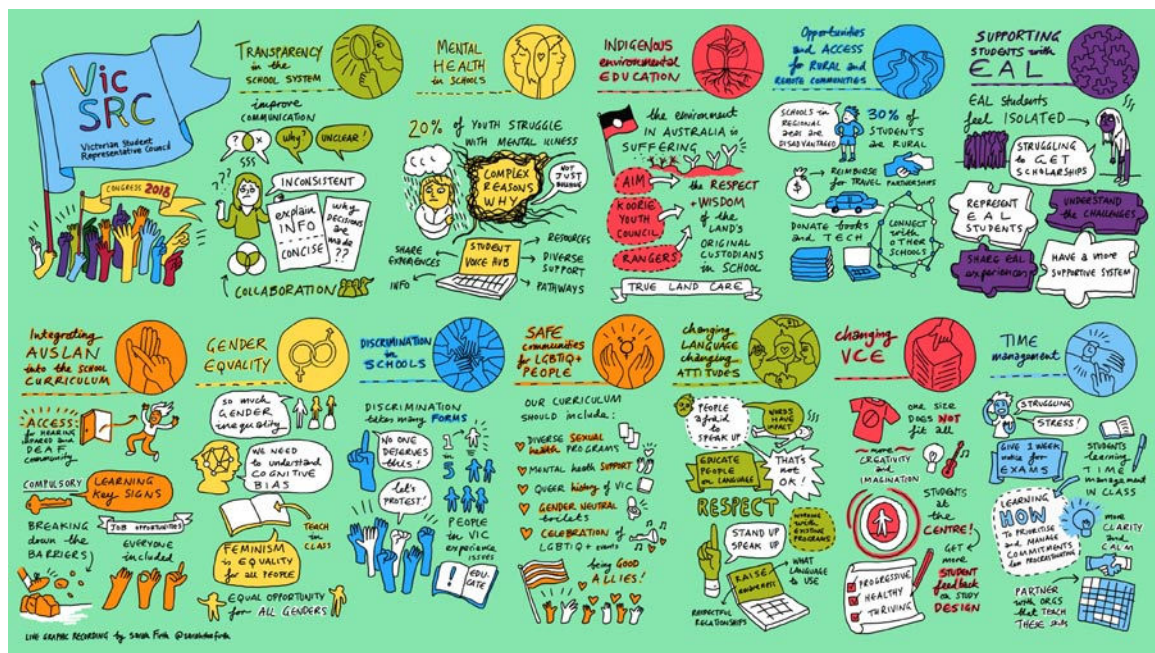 Vic
SRC
Victorian Student
Representative Council
CONGRESS 2018
TRANSPARENCY
in the
SCHOOL SYSTEM
improve
COMMUNICATION
? X
why?
UNCLEAR!
??
INCONSISTENT
explain
INFO
CONCISE
why
DECISIONS
are
made
??
COLLABORATION
MENTAL
HEALTH
in SCHOOLS
20% of YOUTH STRUGGLE
WITH MENTAL ILLNESS
COMPLEX
REASONS
WHY
NOT
JUST
SHARE
EXPERIENCES
INFO
STUDENT
VOICE HUB
RESOURCES
DIVERSE
SUPPORT
PATHWAYS
INDIGENOUS
environmental
EDUCATION
the environment
IN AUSTRALIA is
SUFFERING
AIM
KOORIE
YOUTH
COUNCIL
RANGERS
the RESPECT
+ WISDOM
of the
LAND'S
ORIGINAL
CUSTODIANS
in SCHOOL
TRUE LAND CARE
Opportunities
and ACCESS
for RURAL and
REMOTE COMMUNITIES
SCHOOLS in
REGIONAL
areas are
DISADVANTAGED
30% of
STUDENTS
are RURAL
REIMBURSE
for TRAVEL
PARTNERSHIPS
DONATE books
and TECH
CONNECT
with
OTHER
SCHOOLS
SUPPORTING
STUDENTS with
EAL
EAL students
feel ISOLATED
STRUGGLING
to GET
SCHOLARSHIPS
REPRESENT
EAL
STUDENTS
UNDERSTAND
the CHALLENGES
SHARE EAL
experiences
HAVE a more
SUPPORTIVE SYSTEM
Integrating
AUSLAN
into the SCHOOL
CURRICULUM
ACCESS:
for HEARING
IMPAIRED and
DEAF
community
COMPULSORY
LEARNING
Key SIGNS
JOB OPPORTUNITIES
BREAKING
down the
BARRIERS
EVERYONE
included
GENDER
EQUALITY
so much
GENDER
inequality
WE NEED
to understand
COGNITIVE
BIAS
TEACH
in CLASS
FEMINISM
is EQUALITY
for all PEOPLE
EQUAL OPPORTUNITY
for ALL GENDERS
DISCRIMINATION
in
SCHOOLS
DISCRIMINATION
takes many FORMS
NO ONE
DESERVES
this!
1
in
5
let's
PROTEST!
PEOPLE
in VIC
experience
ISSUES
!
EDU-
CATE
SAFE
communities
for LGBTIQ+
PEOPLE
OUR CURRICULUM
SHOULD include:
DIVERSE SEXUAL
health PROGRAMS
MENTAL health SUPPORT
QUEER history of VIC
GENDER NEUTRAL
toilets
CELEBRATION of
LGBTIQ+ events
being GOOD
ALLIES!
changing
LANGUAGE
changing
ATTITUDES
PEOPLE
afraid to
SPEAK UP
WORDS HAVE
IMPACT
EDUCATE
PEOPLE
on LANGUAGE
THAT'S
not
OK!
RESPECT
WORKING
with EXISTING
PROGRAMS
STAND UP
SPEAK UP
RAISE
awareness
WHAT
LANGUAGE
to USE
RESPECTFUL
RELATIONSHIPS
changing
VCE
one size
DOES NOT
fit all
more
CREATIVITY
and
IMAGINATION
STUDENTS
at the
CENTRE!
GET
more
STUDENT
feedback
on STUDY
DESIGN
PROGRESSIVE
HEALTHY
THRIVING
TIME
management
STRUGGLING
STRESS!
GIVE 3 WEEK
notice for
EXAMS
STUDENTS
learning
TIME
management
IN CLASS
LEARNING
HOW
TO PRIORITISE
and MANAGE
COMMITMENTS
from PROCRASTINATING
more
CLARITY
and
CALM
PARTNER
with ORGS
that TEACH
THESE skills
LIVE GRAPHIC RECORDING by SARAH Firth @sarahthefirth